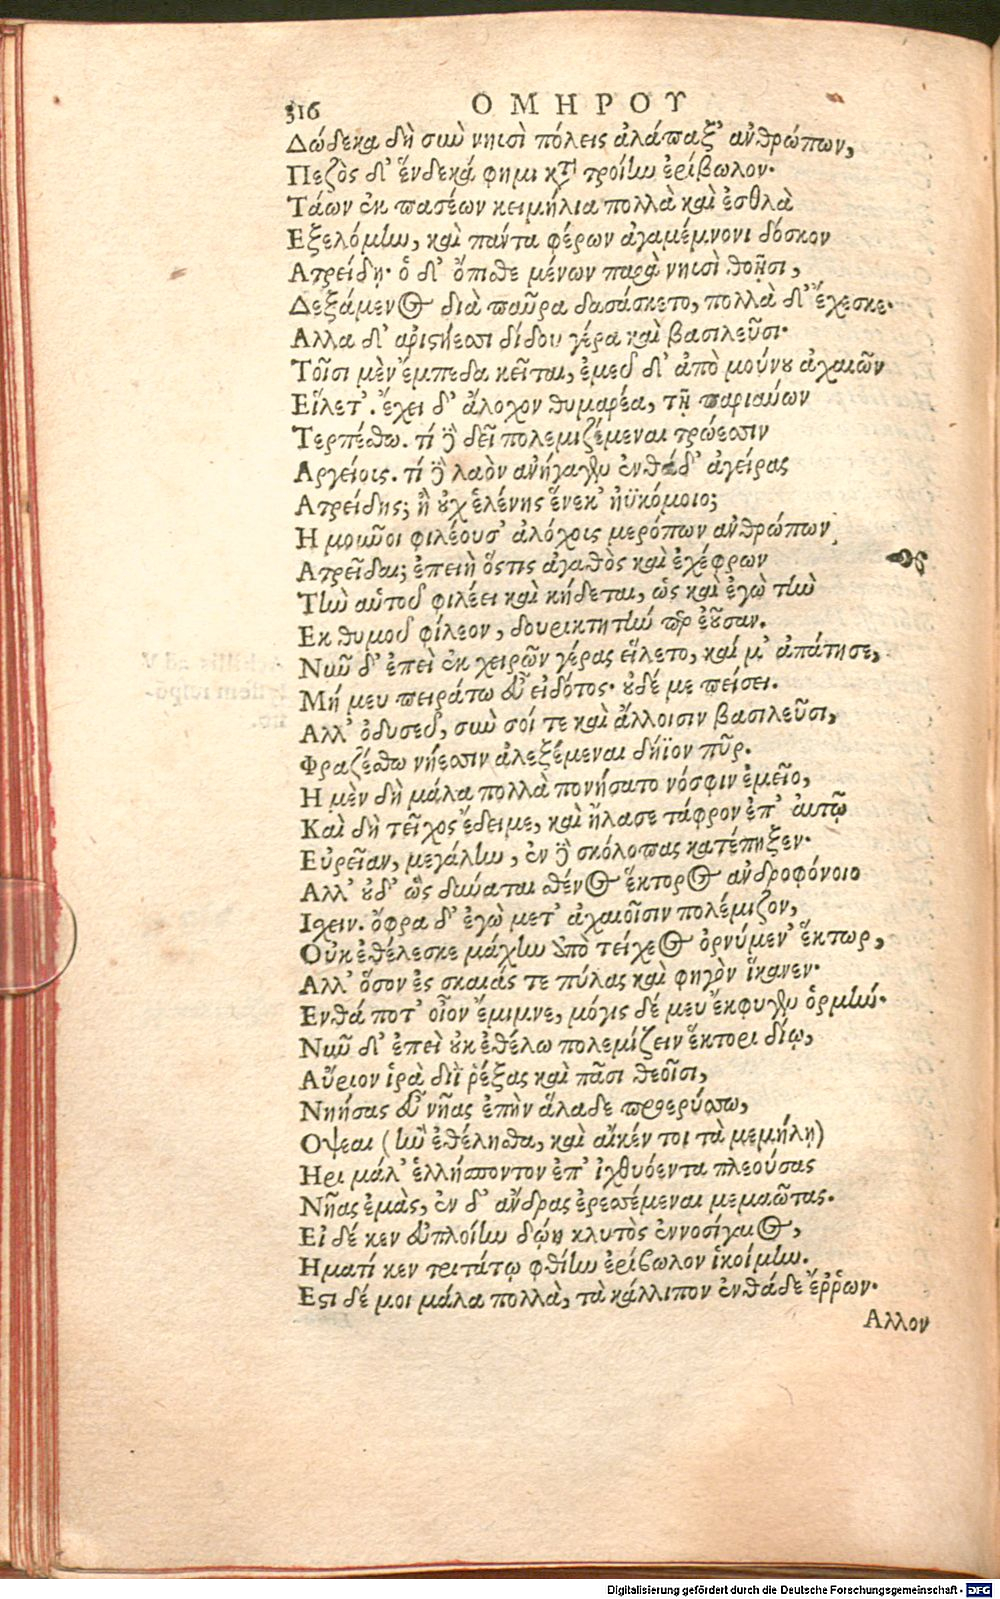 316 ΟΜΗΡΟΥ
Δώδεκα δὴ σὺν νηυσὶ πόλεις ἀλάπαξ' ἀνθρώπων,
Πεζὸς δ' ἕνδεκά φημι κτ̀ τροίην ἐρίβωλον·
Τάων ἐκ πασέων κειμήλια πολλὰ καὶ ἐσθλὰ
Εξελόμην, καὶ πάντα φέρων ἀγαμέμνονι δόσκον
Ατρείδῃ· ὁ δ' ὄπισθε μένων παρὰ νηυσὶ θοῇσι,
Δεξάμενος διὰ παῦρα δασάσκετο, πολλὰ δ' ἔχεσκε·
Αλλα δ' ἀριστήεσσι δίδου γέρα καὶ βασιλεῦσι·
Τοῖσι μὲν ἔμπεδα κεῖται, ἐμεῦ δ' ἀπὸ μούνου ἀχαιῶν
Εἵλετ'. ἔχει δ' ἄλοχον θυμαρέα, τῇ παριαύων
Τερπέσθω. τί δὲ δεῖ πολεμιζέμεναι τρώεσσιν
Αργείοις. τί δὲ λαὸν ἀνήγαγεν ἐνθάδ' ἀγείρας
Ατρείδης; ἢ οὐχ ἑλένης ἕνεκ' ἠϋκόμοιο;
Η μοῦνοι φιλέουσ' ἀλόχοις μερόπων ἀνθρώπων
Ατρεῖδαι; ἐπειὴ ὅςτις ἀγαθὸς καὶ ἐχέφρων
Τὴν αὐτοῦ φιλέει καὶ κήδεται, ὡς καὶ ἐγὼ τὴν
Εκ θυμοῦ φίλεον, δουρικτητήν περ ἐοῦσαν.
Νῦν δ' ἐπεὶ ἐκ χειρῶν γέρας εἵλετο, καί μ' ἀπάτησε,
Μή μευ πειράτω εὖ εἰδότος· οὐδέ με πείσει.
Αλλ' ὀδυσεῦ, σὺν σοί τε καὶ ἄλλοισιν βασιλεῦσι,
Φραζέσθω νήεσσιν ἀλεξέμεναι δήϊον πῦρ.
Η μὲν δὴ μάλα πολλὰ πονήσατο νόσφιν ἐμεῖο,
Καὶ δὴ τεῖχος ἔδειμε, καὶ ἤλασε τάφρον ἐπ' αὐτῷ
Εὐρεῖαν, μεγάλην, ἐν δὲ σκόλοπας κατέπηξεν·
Αλλ' οὐδ' ὣς δύναται σθένος ἕκτορος ἀνδροφόνοιο
Ισχειν. ὄφρα δ' ἐγὼ μετ' ἀχαιοῖσιν πολέμιζον,
Οὐκ ἐθέλεσκε μάχην ἀπὸ τείχεος ὀρνύμεν' ἕκτωρ,
Αλλ' ὅσον ἐς σκαιάς τε πύλας καὶ φηγὸν ἵκανεν·
Ενθά ποτ' οἶον ἔμιμνε, μόγις δέ μευ ἔκφυγεν ὁρμήν·
Νῦν δ' ἐπεὶ οὐκ ἐθέλω πολεμίζειν ἕκτορι δίῳ,
Αὔριον ἱρὰ διῒ ῥέξας καὶ πᾶσι θεοῖσι,
Νηήσας εὖ νῆας ἐπὴν ἅλαδε προερύσσω,
Οψεαι (ἢν ἐθέλησθα, καὶ αἴκέν τοι τὰ μεμήλῃ)
Ηρι μάλ' ἑλλήσποντον ἐπ' ἰχθυόεντα πλεούσας
Νῆας ἐμὰς, ἐν δ' ἄνδρας ἐρεσσέμεναι μεμαῶτας.
Εἰ δέ κεν εὐπλοίην δώῃ κλυτὸς ἐννοσίγαιος,
Ηματί κεν τριτάτῳ φθίην ἐρίβωλον ἱκοίμην.
Εστι δέ μοι μάλα πολλὰ, τὰ κάλλιπον ἐνθάδε ἔῤῥων·
Αλλον
Digitalisierung gefördert durch die Deutsche Forschungsgemeinschaft - DFG